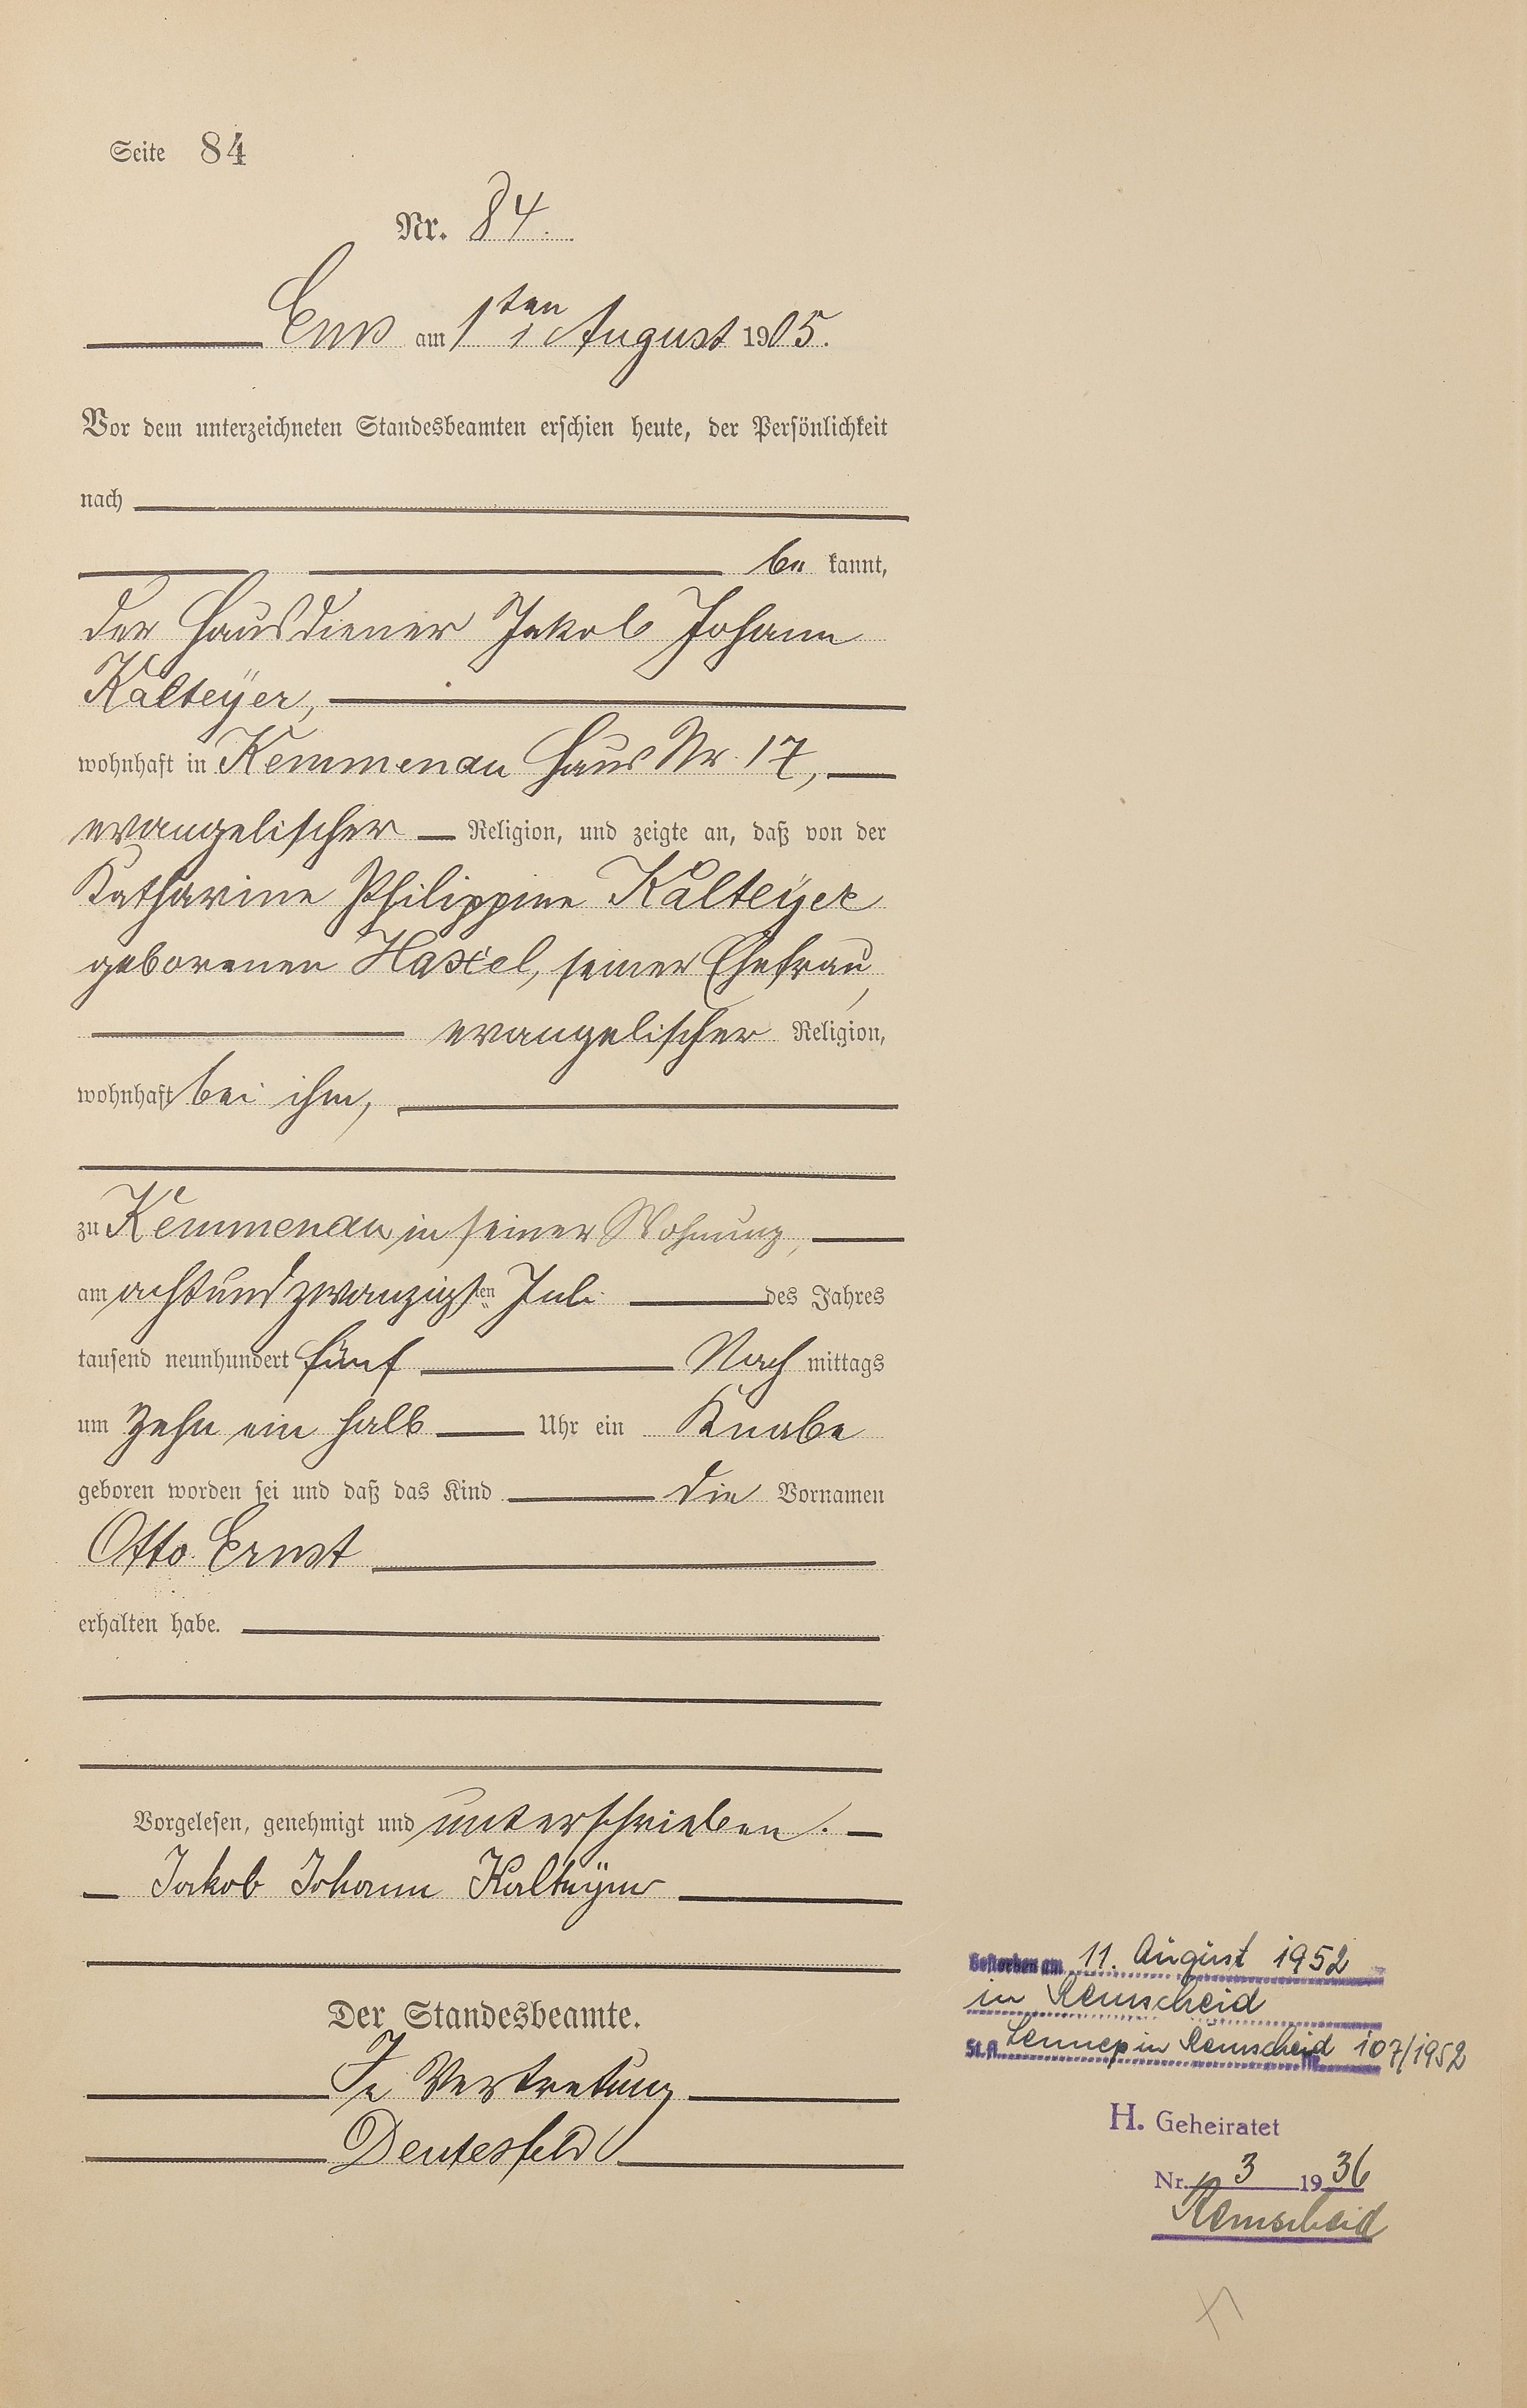 Seite 84
Nr. 84.
Ems am 1ten August 1905.
Vor dem unterzeichneten Standesbeamten erschien heute, der Persönlichkeit
nach
be kannt,
der Hausdiener Jakob Johann
Kalteÿer,
wohnhaft in Kemmenau Haus Nr. 17,
evangelischer Religion, und zeigte an, daß von der
Katharine Philippine Kalteÿer
geborenen Haxel, seiner Ehefrau,
evangelischer Religion,
wohnhaft bei ihm,
zu Kemmenau in seiner Wohnung,
am achtundzwanzigsten Juli des Jahres
tausend neunhundert fünf Nach mittags
um zehn ein halb Uhr ein Knabe
geboren worden sei und daß das Kind die Vornamen
Otto Ernst
erhalten habe.
Vorgelesen, genehmigt und unterschrieben.
Jakob Johann Kalteÿer
Der Standesbeamte.
In Vertretung
Deutesfeld
Gestorben am 11. August 1952
in Remscheid
St.A. Lennep in Remscheid Nr. 107/1952
H. Geheiratet
Nr. 3 1936
Remscheid